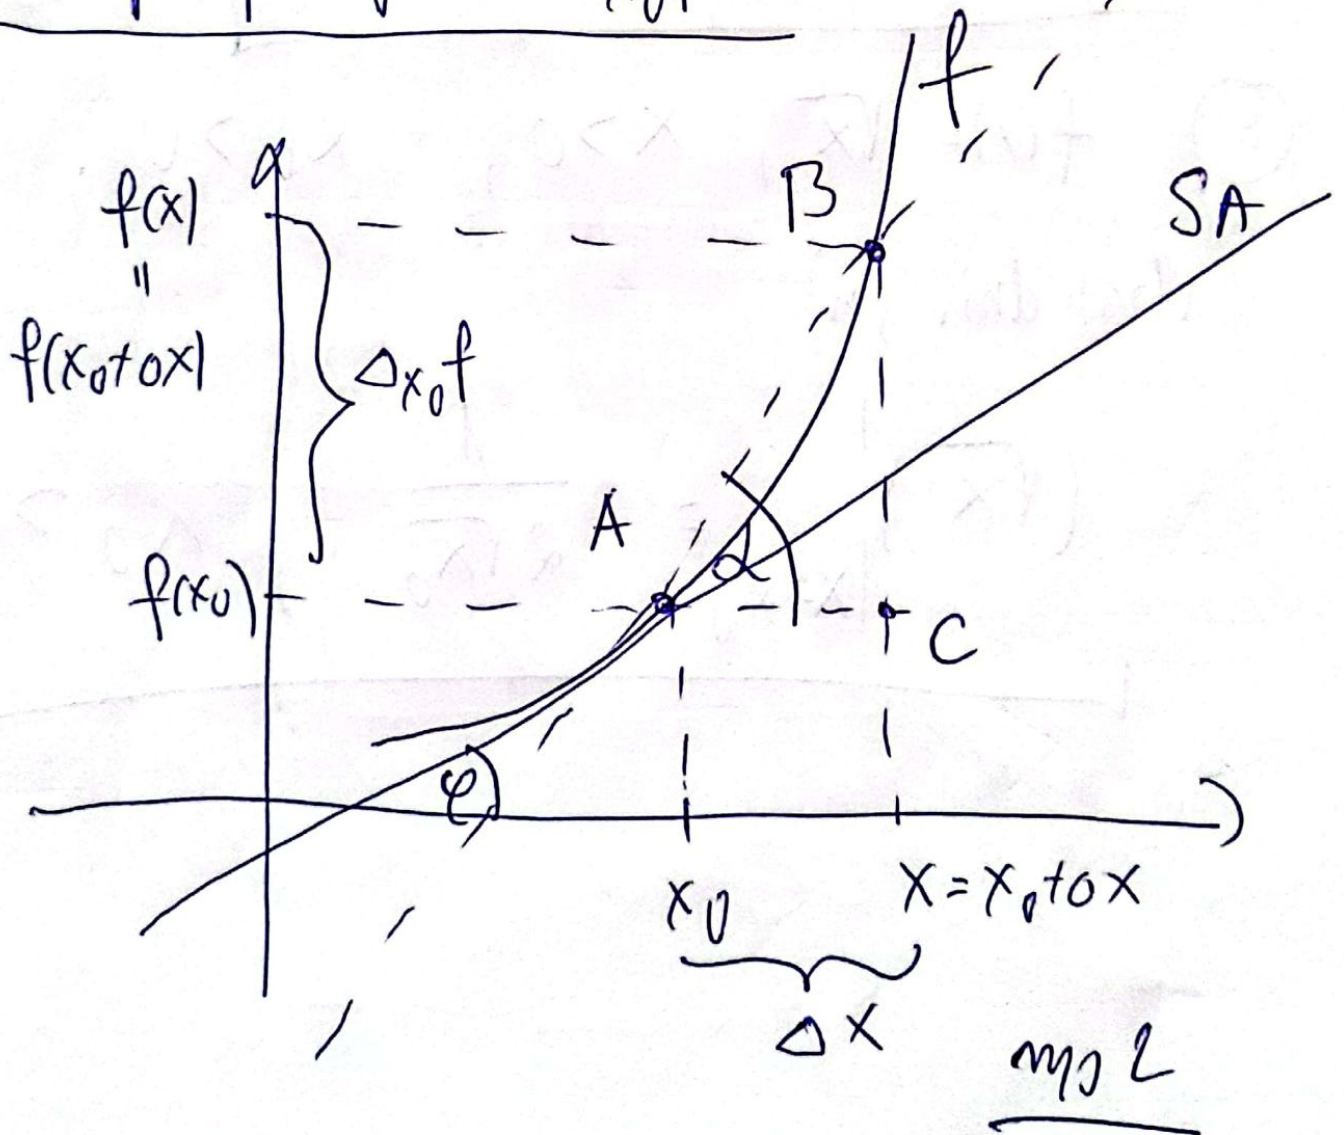 f
B
SA
f(x)
"
f(x₀+Δx)
Δx₀f
A
α
f(x₀)
C
φ
x₀
x = x₀+Δx
Δx